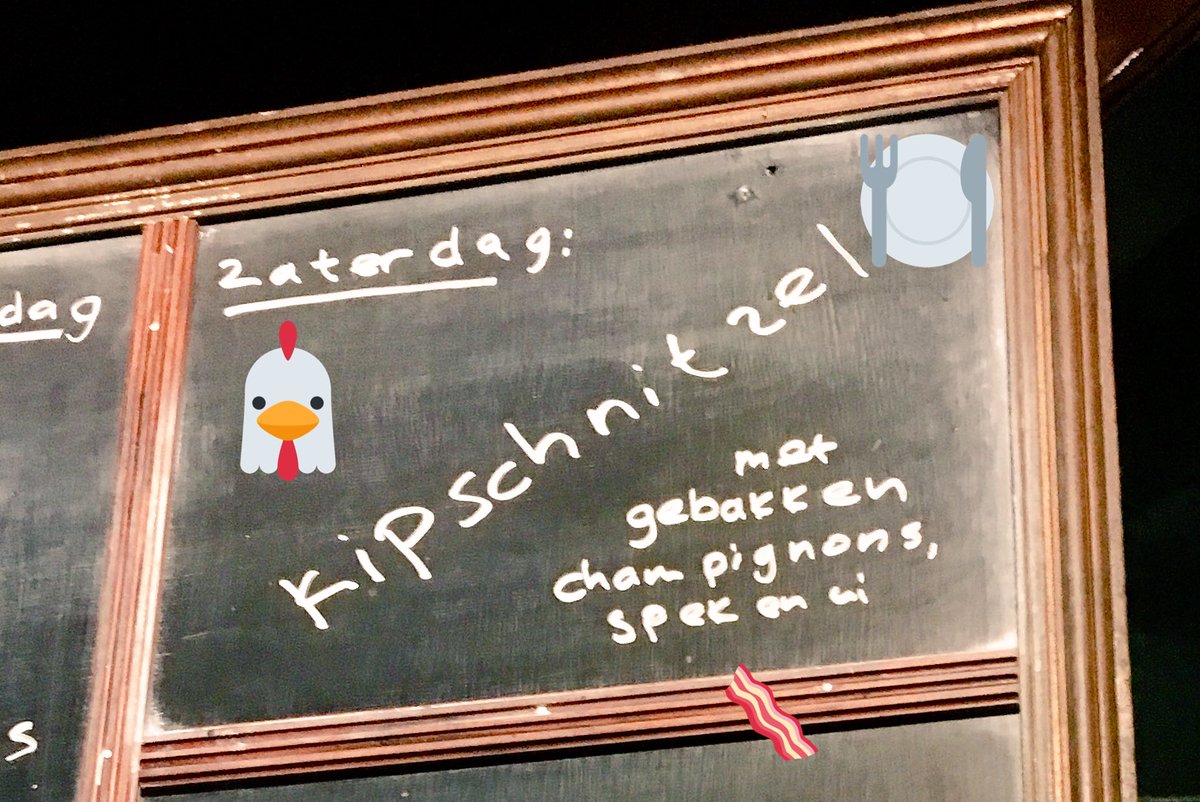 dag
Zaterdag:
Kipschnitzel
met
gebakken
champignons,
spek en ui
s